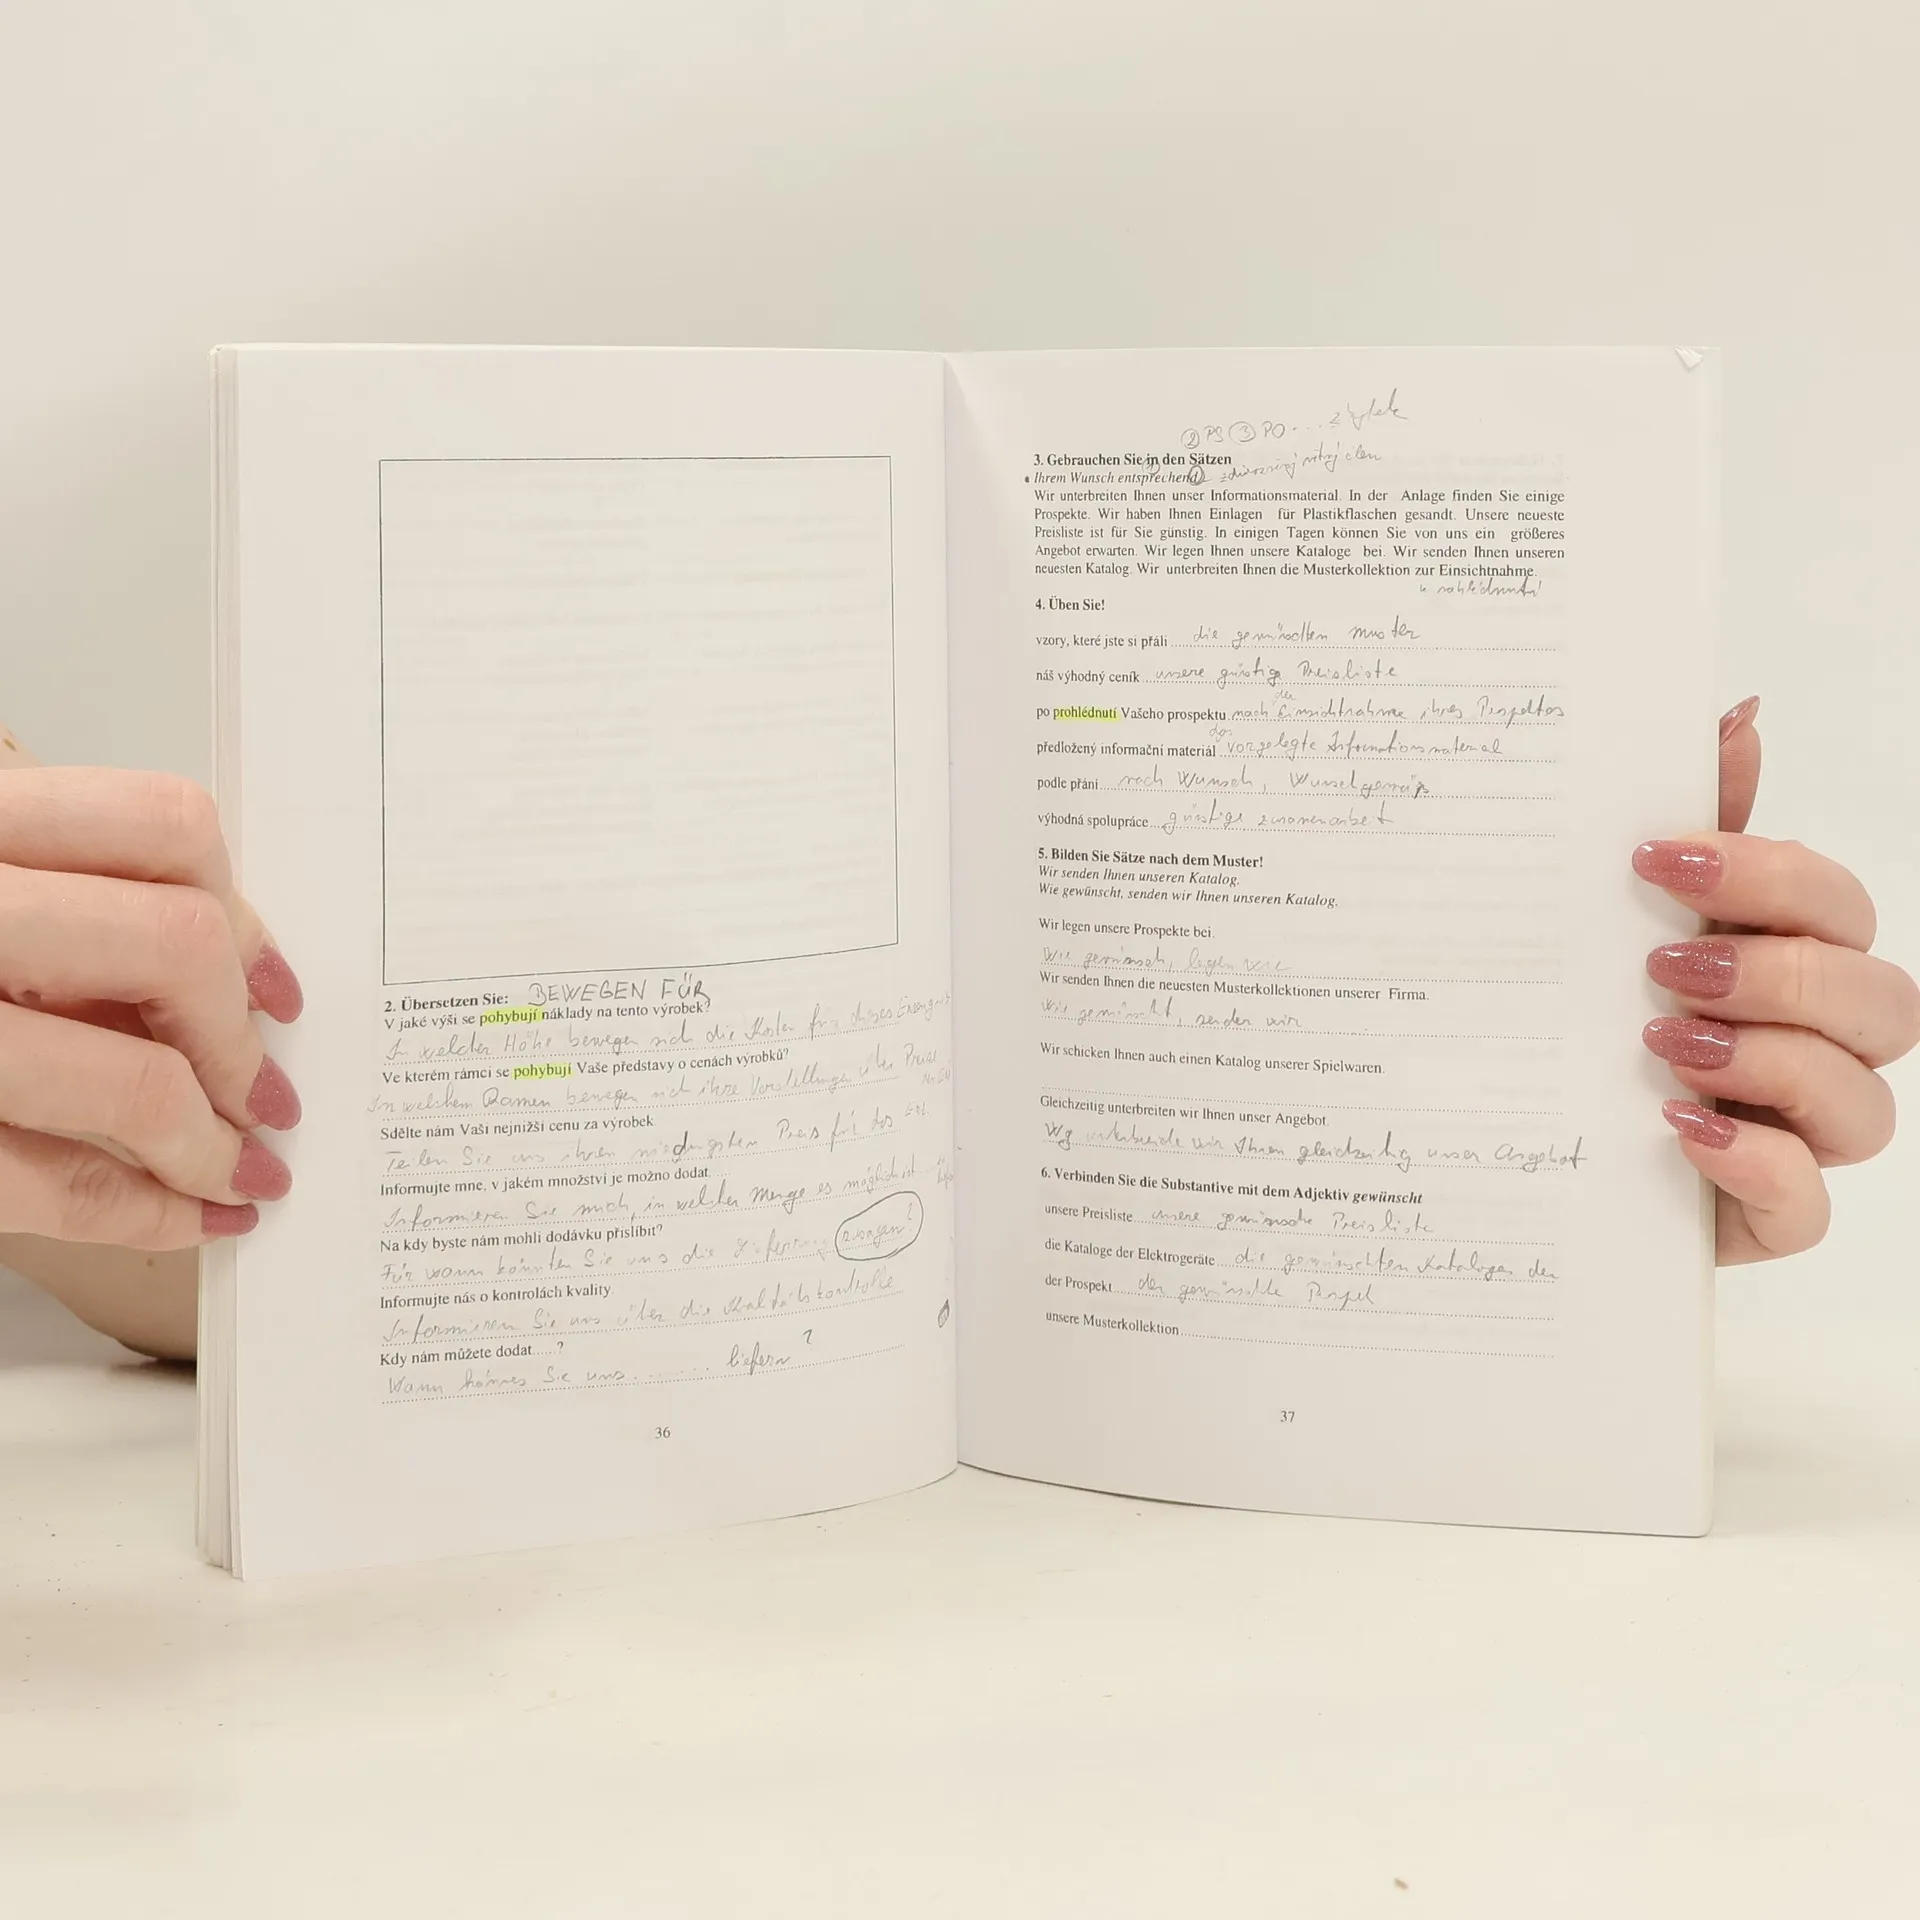 2. Übersetzen Sie: BEWEGEN FÜR
V jaké výši se pohybují náklady na tento výrobek?
In welcher Höhe bewegen sich die Kosten für dieses
Ve kterém rámci se pohybují Vaše představy o cenách výrobků?
In welchem Ramen bewegen sich ihre Vorstellungen über Preise
Sdělte nám Vaši nejnižší cenu za výrobek.
Teilen Sie uns ihren niedrigsten Preis für das
Informujte mne, v jakém množství je možno dodat....
Informieren Sie mich, in welcher Menge es möglich ist
Na kdy byste nám mohli dodávku přislíbit?
Für wann könnten Sie uns die Lieferung zusagen?
Informujte nás o kontrolách kvality.
Informieren Sie uns über die Qualitätskontrolle
Kdy nám můžete dodat.....?
Wann können Sie uns ........ liefern?
36
② PS ③ PO ... zbytek
3. Gebrauchen Sie in den Sätzen
Ihrem Wunsch entsprechend
Wir unterbreiten Ihnen unser Informationsmaterial. In der Anlage finden Sie einige
Prospekte. Wir haben Ihnen Einlagen für Plastikflaschen gesandt. Unsere neueste
Preisliste ist für Sie günstig. In einigen Tagen können Sie von uns ein größeres
Angebot erwarten. Wir legen Ihnen unsere Kataloge bei. Wir senden Ihnen unseren
neuesten Katalog. Wir unterbreiten Ihnen die Musterkollektion zur Einsichtnahme.
k nahlédnutí
4. Üben Sie!
vzory, které jste si přáli die gewünschten muster
náš výhodný ceník unsere günstige Preisliste
der
po prohlédnutí Vašeho prospektu nach Einsichtnahme ihres Prospektes
das
předložený informační materiál vorgelegte Informationsmaterial
podle přání nach Wunsch, Wunschgemäß
výhodná spolupráce günstige
5. Bilden Sie Sätze nach dem Muster!
Wir senden Ihnen unseren Katalog.
Wie gewünscht, senden wir Ihnen unseren Katalog.
Wir legen unsere Prospekte bei.
Wie gewünsch, legen wir
Wir senden Ihnen die neuesten Musterkollektionen unserer Firma.
Wie gewünscht, senden wir
Wir schicken Ihnen auch einen Katalog unserer Spielwaren.
Gleichzeitig unterbreiten wir Ihnen unser Angebot.
Wg wir Ihnen gleichzeitig unser Angebot
6. Verbinden Sie die Substantive mit dem Adjektiv gewünscht
unsere Preisliste unsere Preisliste
die Kataloge der Elektrogeräte die gewünschten Katalogen der
der Prospekt der gewünschte
unsere Musterkollektion
37